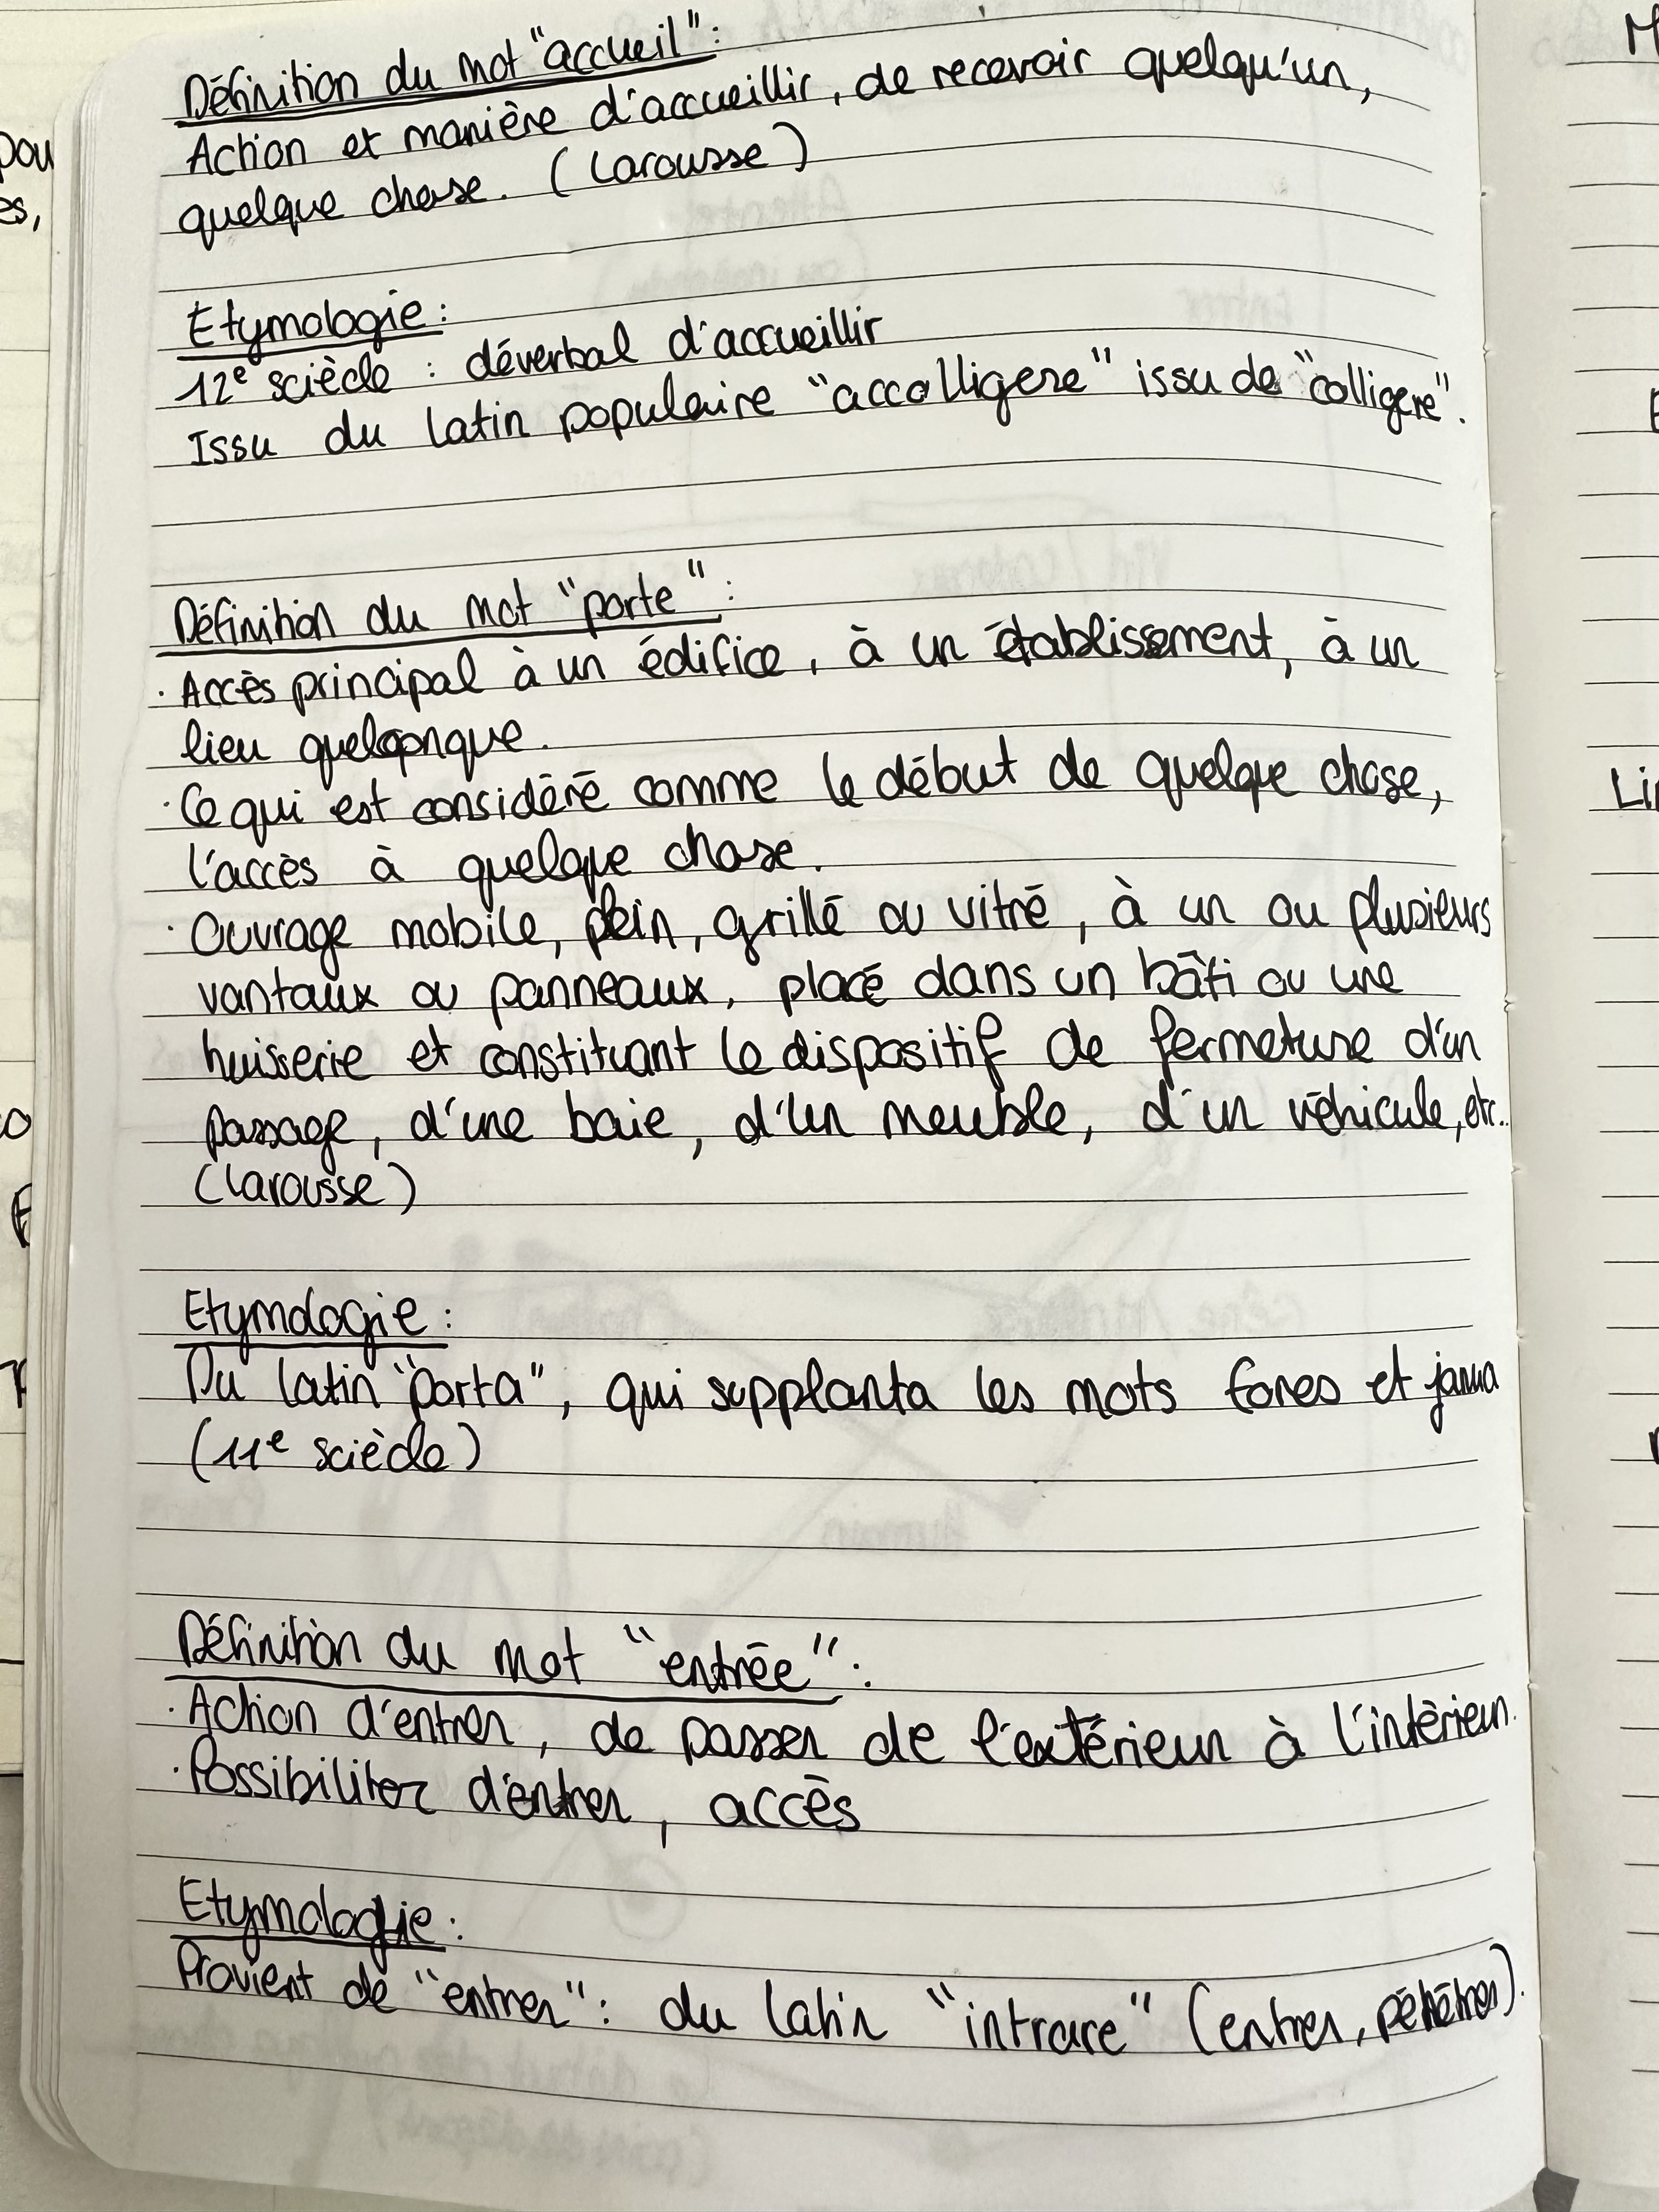 Définition du mot "accueil" :
Action et manière d'accueillir, de recevoir quelqu'un,
quelque chose. (Larousse)
Etymologie :
12e sciècle : déverbal d'accueillir
Issu du latin populaire "accolligere" issu de "colligere".
Définition du mot "porte" :
· Accès principal à un édifice, à un établissement, à un
lieu quelconque.
· Ce qui est considéré comme le début de quelque chose,
l'accès à quelque chose.
· Ouvrage mobile, plein, grillé ou vitré, à un ou plusieurs
vantaux ou panneaux, placé dans un bâti ou une
huisserie et constituant le dispositif de fermeture d'un
passage, d'une baie, d'un meuble, d'un véhicule, etc..
(Larousse)
Etymologie :
Du latin "porta", qui supplanta les mots fores et janua
(11e sciècle)
Définition du mot "entrée" :
· Action d'entrer, de passer de l'extérieur à l'intérieur.
· Possibiliter d'entrer, accès
Etymologie :
Provient de "entrer" : du latin "intrare" (entrer, pénétrer).